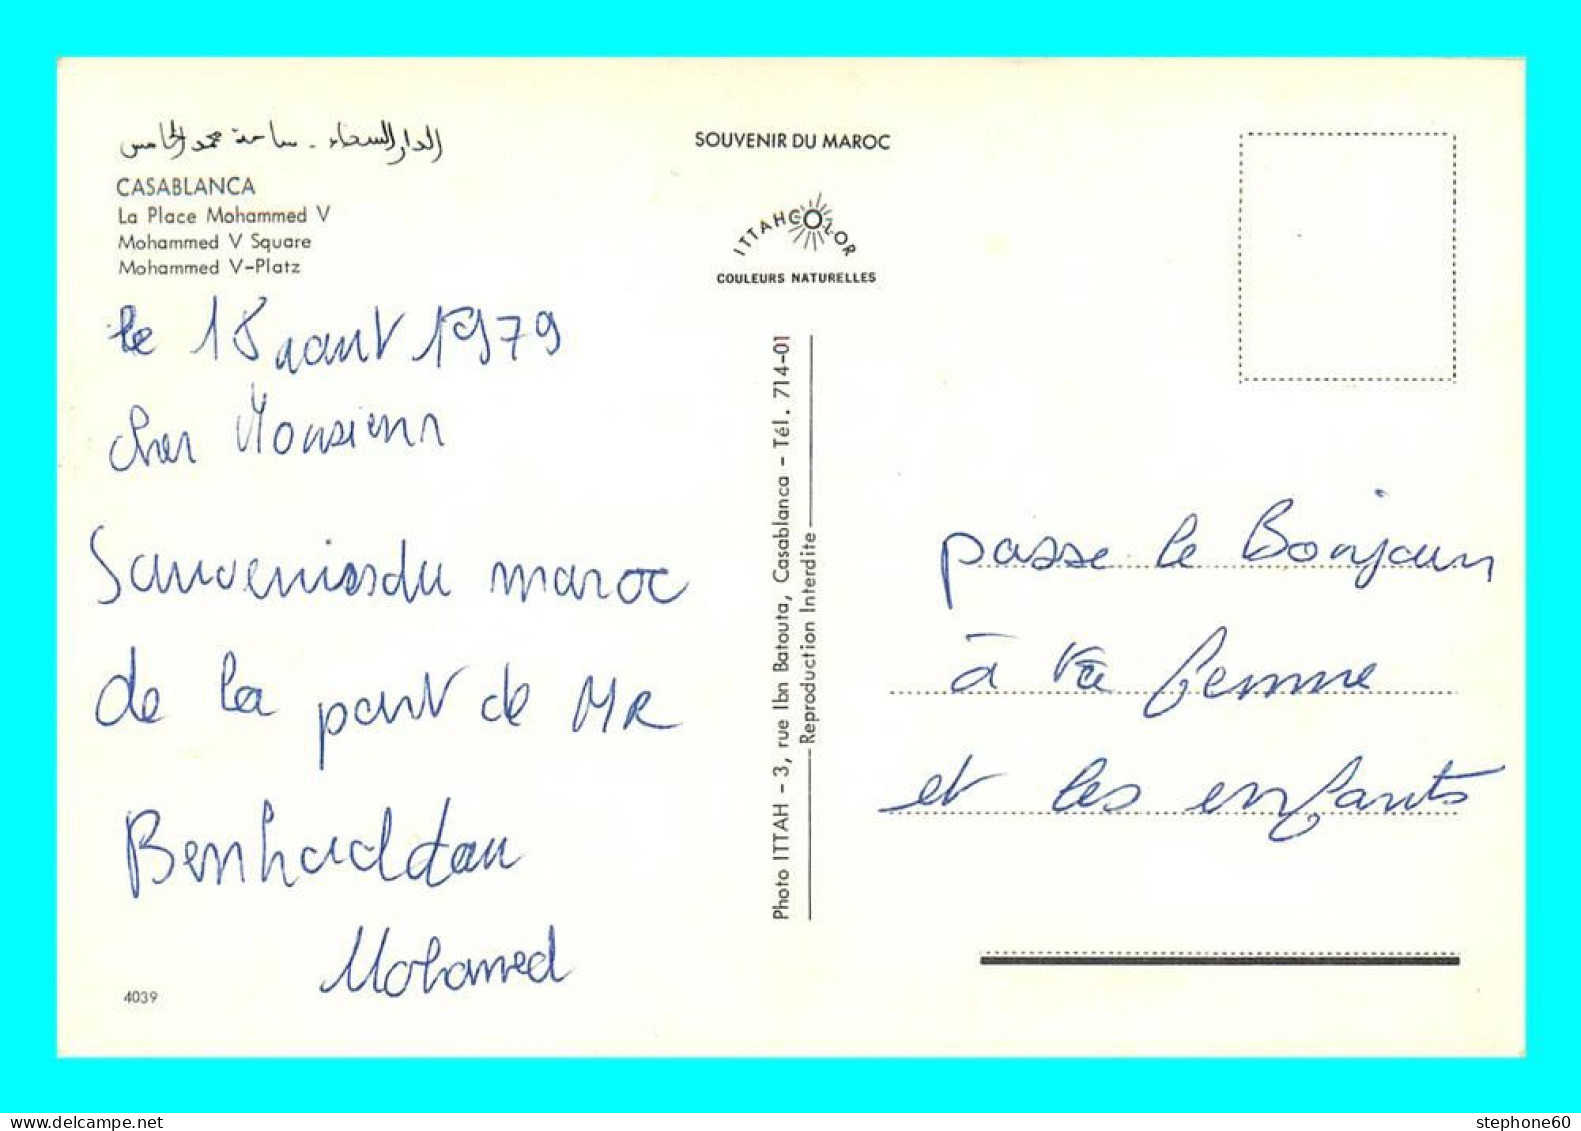 الدار البيضاء - ساحة محمد الخامس
CASABLANCA
La Place Mohammed V
Mohammed V Square
Mohammed V-Platz
le 18 aout 1979
cher Monsieur
Souvenirs du maroc
de la part de MR
Benhaddou
Mohamed
4039
SOUVENIR DU MAROC
ITTAHCOLOR
COULEURS NATURELLES
Photo ITTAH - 3, rue Ibn Batouta, Casablanca - Tél. 714-01
Reproduction Interdite
passe le Bonjour
à ta femme
et les enfants
delcampe.net
stephone60